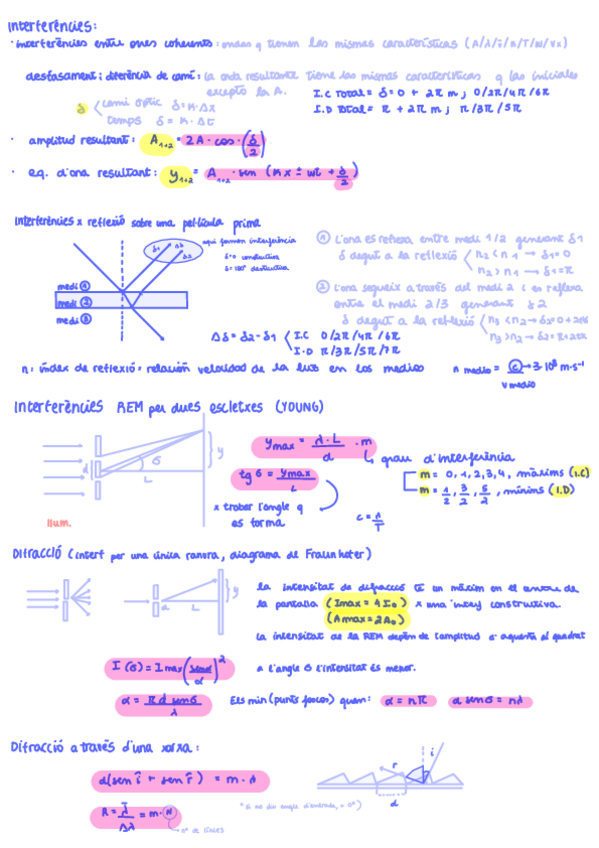 Interferències:
· interferències entre ones coherents: ondas q tienen las mismas características (A/λ/f/K/T/w/vx)
desfasament: diferència de camí: la onda resultante tiene las mismas características q las iniciales
excepto la A.
I.C Total = δ = 0 + 2π m ; 0/2π/4π/6π
δ < camí òptic δ = K · Δx
I.D Total = π + 2π m ; π/3π/5π
temps δ = K · Δt
· amplitud resultant: A1+2 = 2A · cos · (δ/2)
· eq. d'ona resultant: y1+2 = A1+2 · sen (Kx ± wt + δ/2)
Interferències x reflexió sobre una pel·lícula prima
δ1 δ2
aquí formen interferència
δ=0 constructiva
δ=180° destructiva
medi ①
medi ②
medi ③
① L'ona es reflexa entre medi 1/2 generant δ1
δ degut a la reflexió < n2 < n1 → δ1 = 0
n2 > n1 → δ1 = π
② L'ona segueix a través del medi 2 i es reflexa
entre el medi 2/3 generant δ2
δ degut a la reflexió < n3 < n2 → δ2 = 0 + 2πx
n3 > n2 → δ2 = π + 2πx
Δδ = δ2 - δ1 < I.C 0/2π/4π/6π
I.D π/3π/5π/7π
n: índex de reflexió = relación velocidad de la luz en los medios
n medio = c → 3·10⁸ m·s⁻¹ / v medio
Interferències REM per dues escletxes (YOUNG)
d
θ
L
y
llum.
ymax = λ · L / d · m
↳ grau d'interferència
tg θ = ymax / L
m = 0, 1, 2, 3, 4, màxims (I.C)
m = 1/2, 3/2, 5/2, mínims (I.D)
x trobar l'angle q
es forma
c = λ/T
Difracció (interf per una única ranura, diagrama de Fraunhofer)
a
L
y
la intensitat de difracció té un màxim en el centre de
la pantalla (Imax = 4I0) x una interf constructiva.
(Amax = 2A0)
la intensitat de la REM depèn de l'amplitud d'aquesta al quadrat
I(θ) = Imax (senα / α)²
a l'angle θ l'intensitat és menor.
α = π d senθ / λ
Els min (punts foscos) quan: α = nπ d senθ = nλ
Difracció a través d'una xarxa:
d(sen î + sen r̂) = m · λ
r
i
d
R = λ̄ / Δλ = m · N
→ nº de línies
* si no diu angle d'entrada, = 0°)